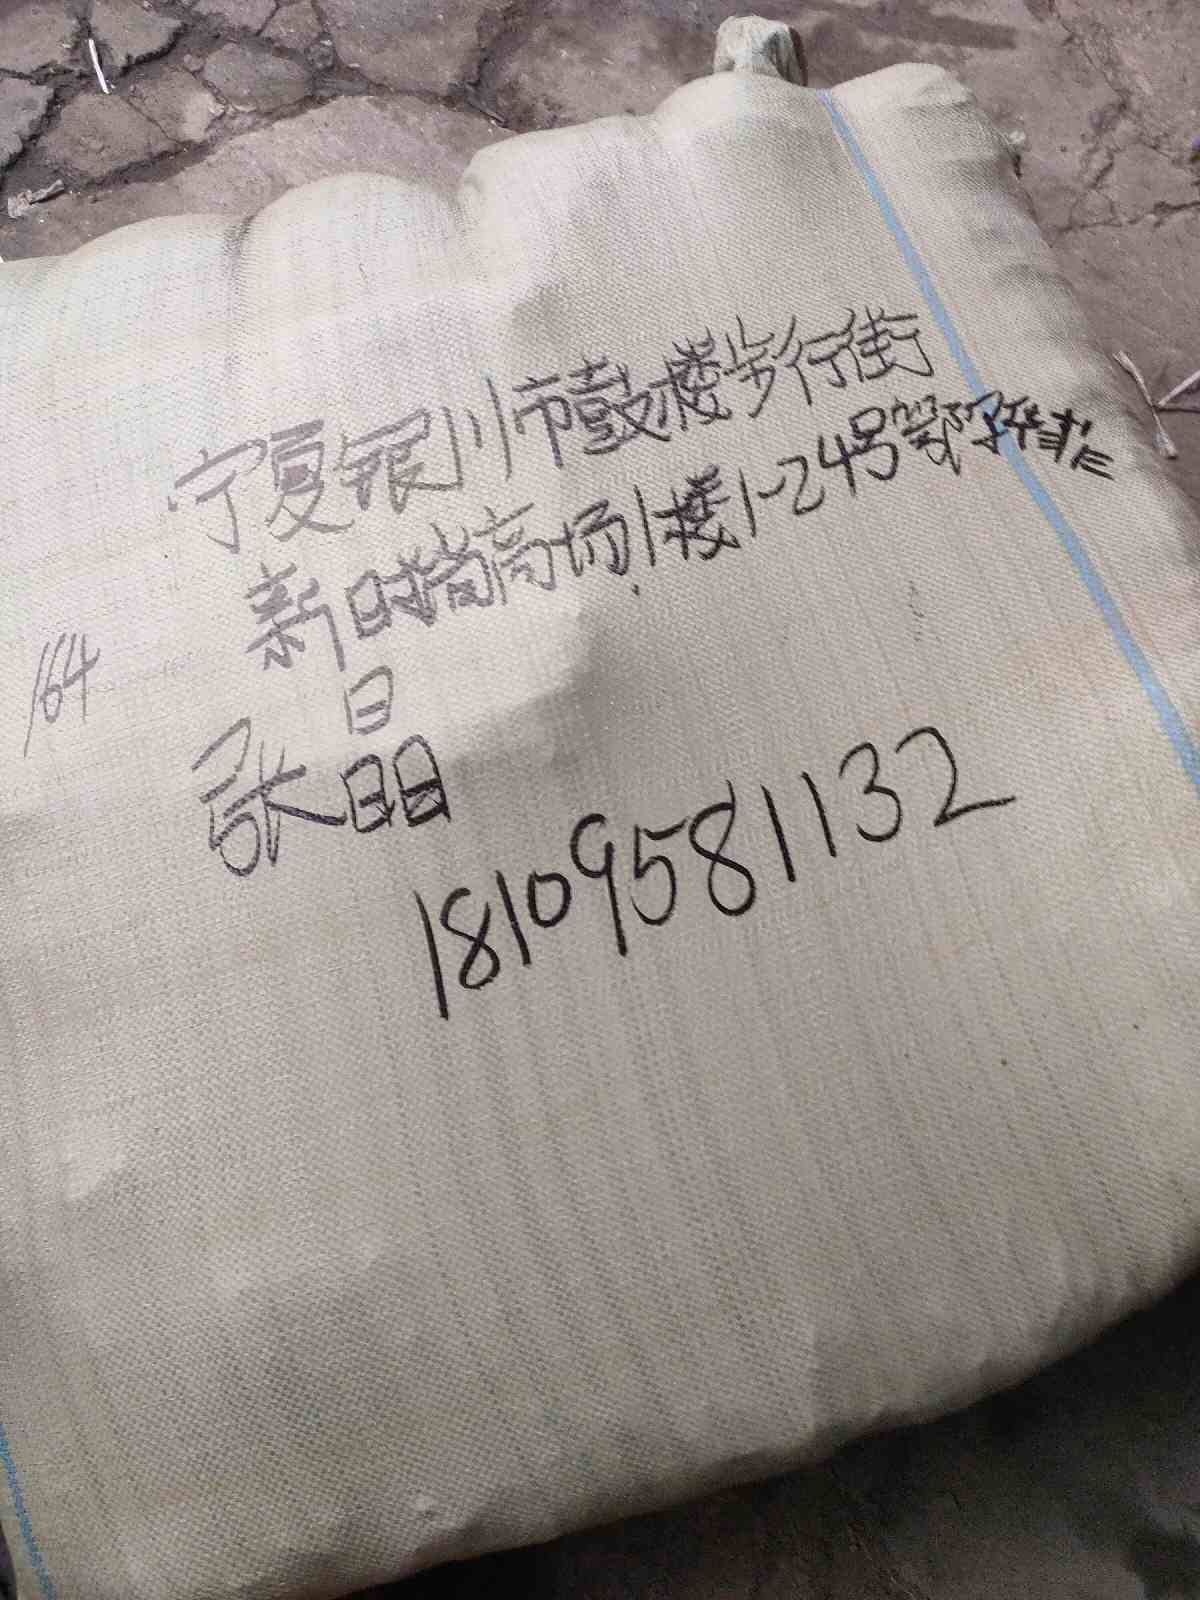 宁夏银川市鼓楼步行街
新时尚商场1楼1-24号鄂
164
张晶
18109581132